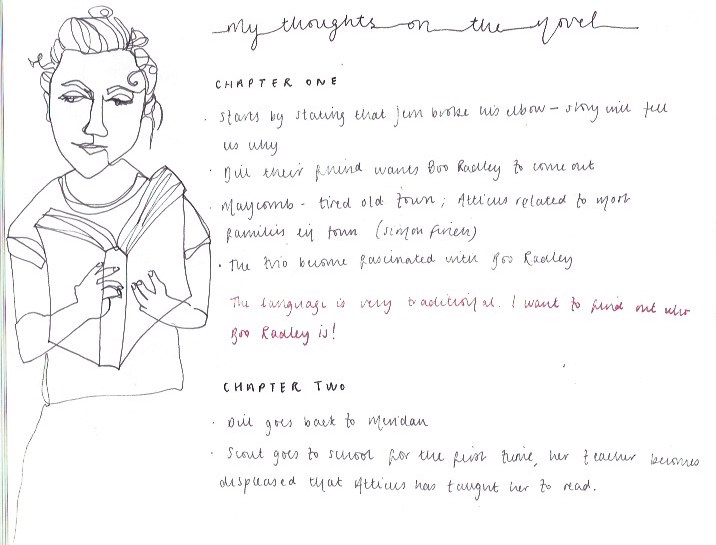 my thoughts on the novel
CHAPTER ONE
· Starts by stating that Jem broke his elbow – story will tell
us why
· Dill their friend wants Boo Radley to come out
· Maycomb - tired old town; Atticus related to most
families in town (Simon Finch)
· The trio become fascinated with Boo Radley
The language is very traditional. I want to find out who
Boo Radley is!
CHAPTER TWO
· Dill goes back to Meridan
· Scout goes to school for the first time, her teacher becomes
displeased that Atticus has taught her to read.